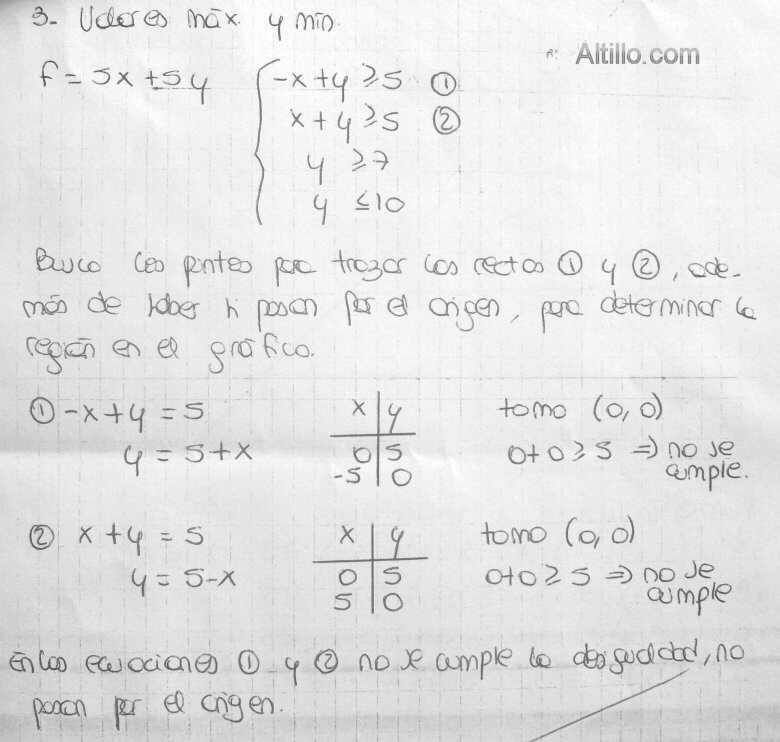 3- Valores máx. y mín.
Altillo.com
f = 5x + 5y { -x + y ≥ 5 ①
x + y ≥ 5 ②
y ≥ 7
y ≤ 10
Busco los puntos para trazar las rectas ① y ②, ade-
más de saber si pasan por el origen, para determinar la
región en el gráfico.
① -x + y = 5
y = 5 + x
x | y
0 | 5
-5 | 0
tomo (0, 0)
0 + 0 ≥ 5 ⇒ no se
cumple.
② x + y = 5
y = 5 - x
x | y
0 | 5
5 | 0
tomo (0, 0)
0 + 0 ≥ 5 ⇒ no se
cumple
En las ecuaciones ① y ② no se cumple la desigualdad, no
pasan por el origen.